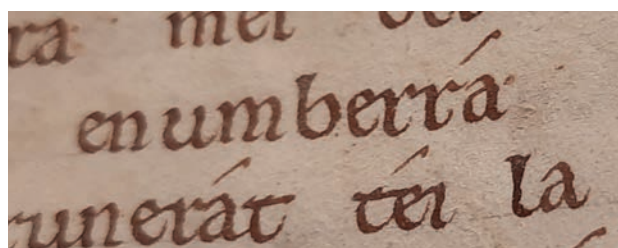 ra mei
enumberrá
runerát téi la